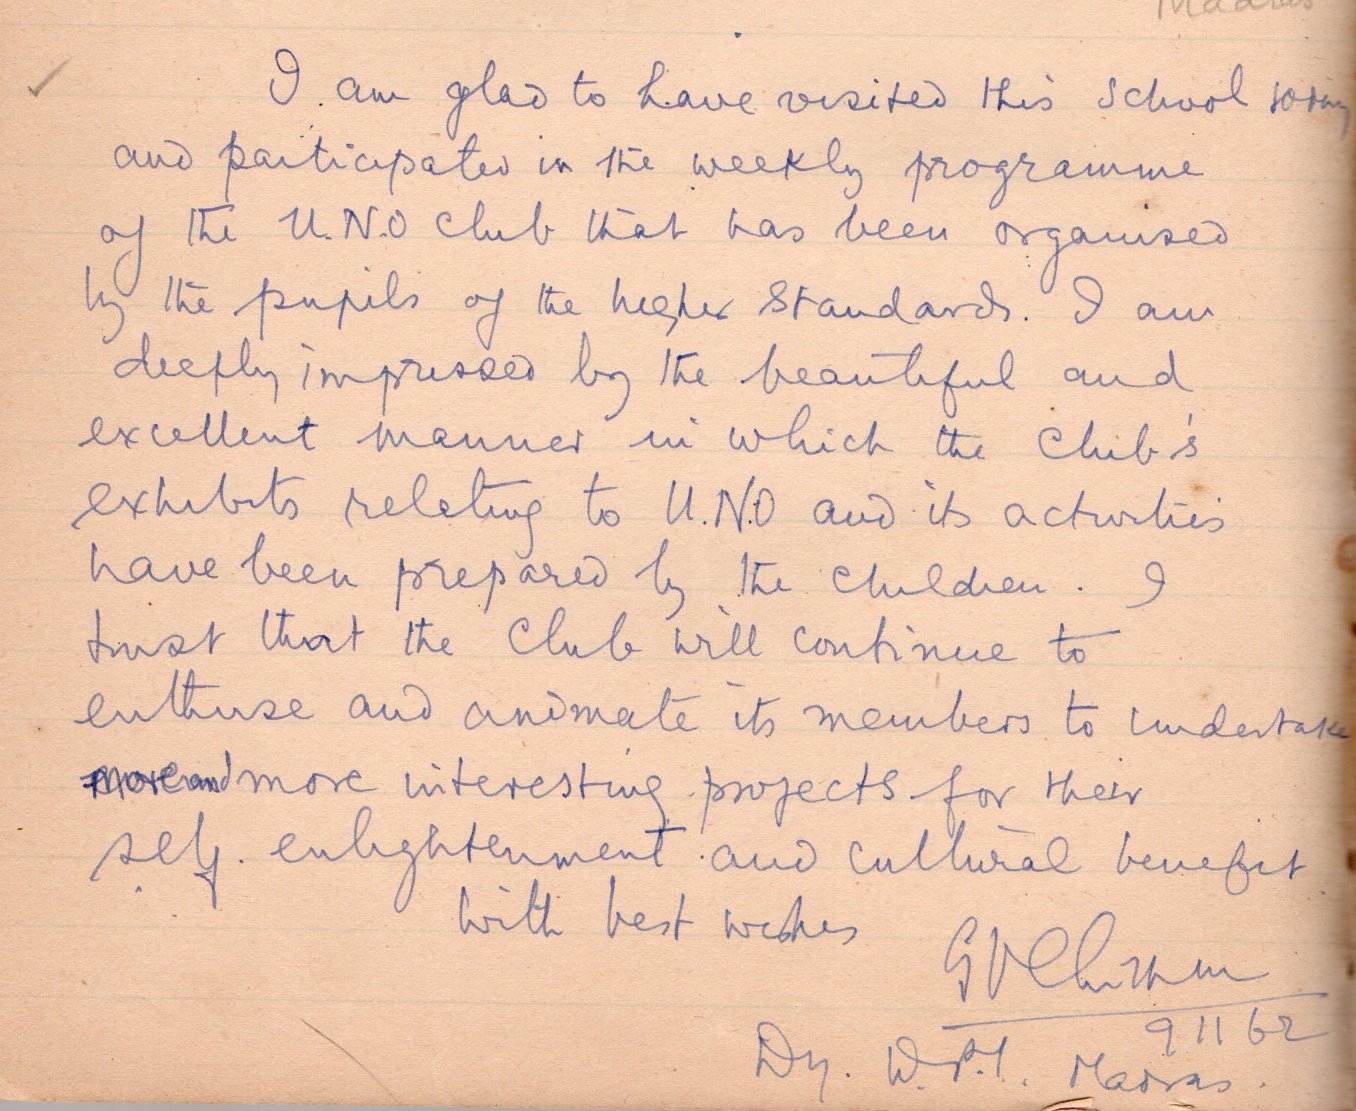 Madras
I am glad to have visited this School today
and participated in the weekly programme
of the U.N.O Club that has been organised
by the pupils of the higher Standards. I am
deeply impressed by the beautiful and
excellent manner in which the Club's
exhibits relating to U.N.O and its activities
have been prepared by the children. I
trust that the Club will continue to
enthuse and animate its members to undertake
more and more interesting projects for their
self. enlightenment and cultural benefit.
With best wishes
9 11 62
Dy. D.P.I. Madras.